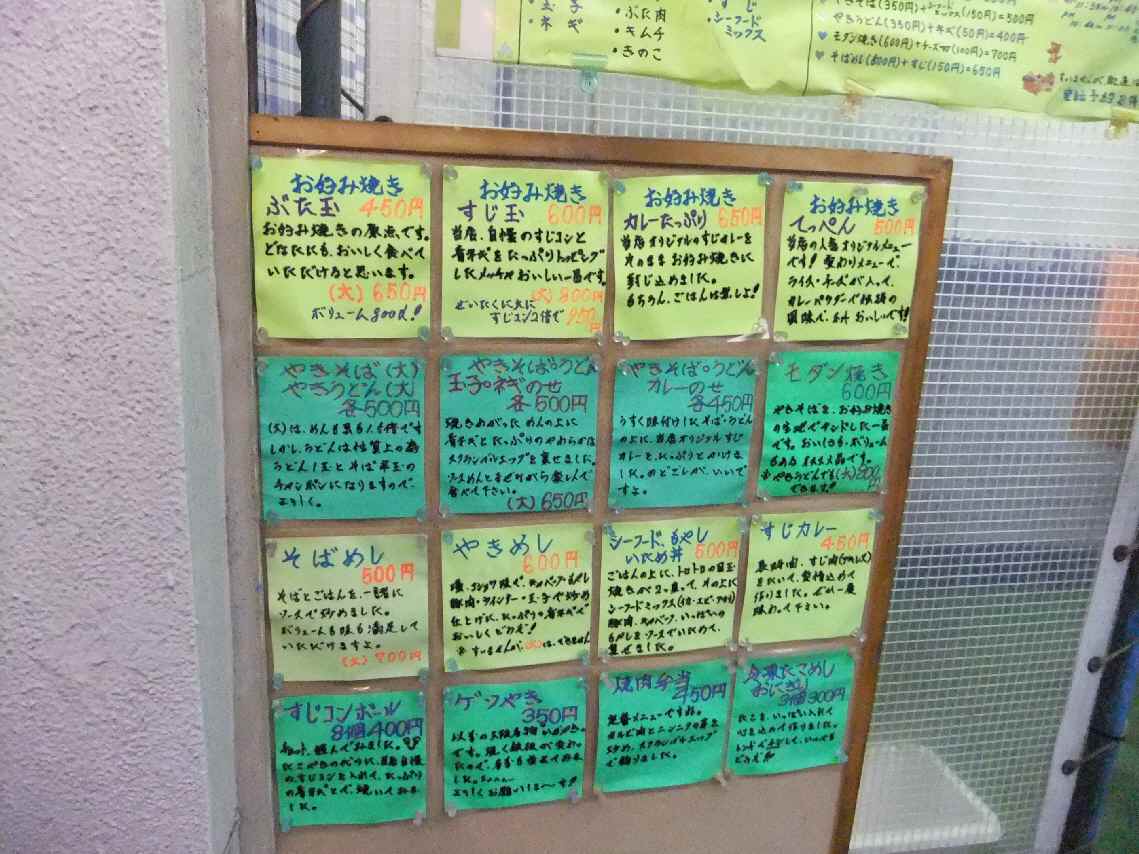 玉子
ネギ
ぶた肉
キムチ
きのこ
すじ
シーフード
ミックス
やきそば(350円)+シーフードミックス(150円)=500円
やきうどん(350円)+キムチ(50円)=400円
モダン焼き(600円)+チーズ(100円)=700円
そばめし(500円)+すじ(150円)=650円
お好み焼き
ぶた玉 450円
お好み焼きの原点です。
どなたにも、おいしく食べて
いただけると思います。
(大)650円
ボリューム800g!!
お好み焼き
すじ玉 600円
当店、自慢のすじコンと
青ネギをたっぷりトッピング
したメッチャおいしい一品です。
(大)800円
ぜいたくに大に
すじコンコ倍で 950円
お好み焼き
カレーたっぷり 650円
当店オリジナルのすじカレーを
そのままお好み焼きに
封じ込めました。
もちろん、ごはんは無しよ!
お好み焼き
てっぺん 500円
当店の人気オリジナルメニュー
です! 変わりメニューで、
ライス・チーズが入って、
カレーパウダーで
風味で、おいしいです!!
やきそば(大)
やきうどん(大)
各500円
(大)は、めんも具も1.5倍です
しかし、うどんは性質上の為
うどん1玉とそば半玉の
チャンポンになりますので
よろしく。
やきそば・うどん
玉子・ネギのせ
各500円
焼きあがっためんの上に
青ネギとたっぷりのやわらかな
スクランブルエッグを乗せました。
ソースめんとまぜながら楽しんで
食べて下さい。
(大)650円
やきそば・うどん
カレーのせ
各450円
うすく味付けしたそば・うどん
の上に、当店オリジナルすじ
カレーを、たっぷりとかけま
した。のどごしが、いいで
すよ。
モダン焼き
600円
やきそばを、お好み焼き
の生地でサンドした一品
です。おいしさも、ボリューム
もある
※やきうどんでも(大)800円
できます!!
そばめし
500円
そばとごはんを、一諸に
ソースで炒めました。
ボリュームも味も満足して
いただけますよ。
(大)700円
やきめし
600円
塩・コショウ味で、キャベツ・もやし
豚肉・ウインナー・玉子で炒め
仕上げに、たっぷりの青ネギで
おいしくどうぞ!
※すいませんが、(大)は、できません
シーフード、もやし
いため丼 500円
ごはんの上に、トロトロの目玉
焼きが2ヶ乗って、その上に
シーフードミックス(イカ・エビ・アサリ)
豚肉、キャベツ、いっぱいの
もやしをソースでいためて、
乗せました。
すじカレー
450円
長時間、すじ肉
をたいて、愛情込めて
作りました。ぜひ一度
味わって下さい。
すじコンボール
8個400円
たこやきの代りに、当店自慢
のすじコンを入れて、たっぷり
の青ネギとで、焼いてみま
した。
ゲソやき
350円
以前の大阪名物いか焼き
です。
よろしくお願いしま〜す!!
焼肉弁当
450円
定番メニューですね。
カルビ肉とニンニクの芽を
炒め、スクランブルエッグ
で飾りました。
おにぎり
3個300円
たこを、いっぱい入れて
心を込めて作りました。
レンジで
どうぞ